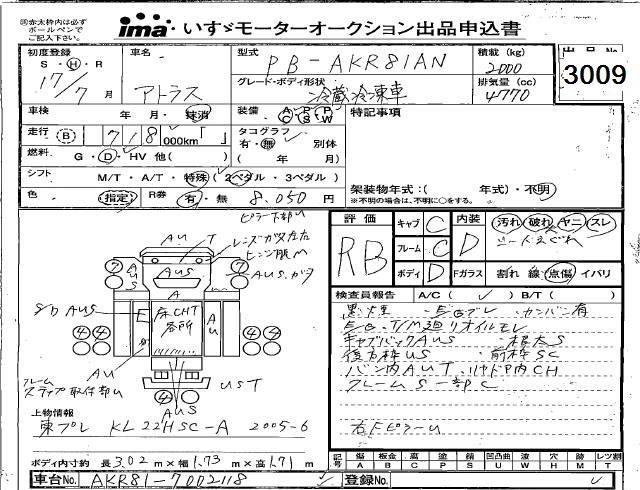 ※赤太枠内は必ず
ボールペンで
ご記入下さい。
ima いすゞモーターオークション出品申込書
初度登録 S・H・R
17/7月
車名 アトラス
型式 PB-AKR81AN
積載(kg) 2000
出品No 3009
グレード・ボディ形状 冷蔵冷凍車
排気量(cc) 4770
車検 年 月・抹消
装備 A P P C S W
特記事項
走行 B 718 000km
タコグラフ 有・無 別体 (年 月)
燃料 G・D・HV 他( )
シフト M/T・A/T・特殊(2ペダル・3ペダル)
架装物年式:( 年式)・不明
※不明の場合は、不明に○をする。
色 指定
R券 有・無 8.050円
評価 RB
キャブ C
フレーム C
ボディ D
内装 D
汚れ・破れ・ヤニ・スレ
Fガラス 割れ 線 点傷 イバリ
ピラー下部U
AUT
レンズガタ左右
AUS
AUSガタ
AUS
A
S/D AUS
E
床CHT
各所
AU
AU
フレーム
ステップ取付部U
UST
AUS
検査員報告 A/C( ✓ ) B/T( )
黒煙・E/Gブレ・カンバン有
E/G、T/M廻りオイルモレ
キャブバックAUS・根太S
後方枠US・前枠SC
バン内AUT、リヤドア内CH
フレームS一部C
右FピラーU
上物情報
東プレ KL22HSC-A 2005-6
ボディ内寸約 長3.02m×幅1.73m×高1.71m
記号 傷A 板金B 腐C 塗P 錆S 凹凸曲U 波W 穴H 時M レツ割T
車台No. AKR81-7002118
登録No.